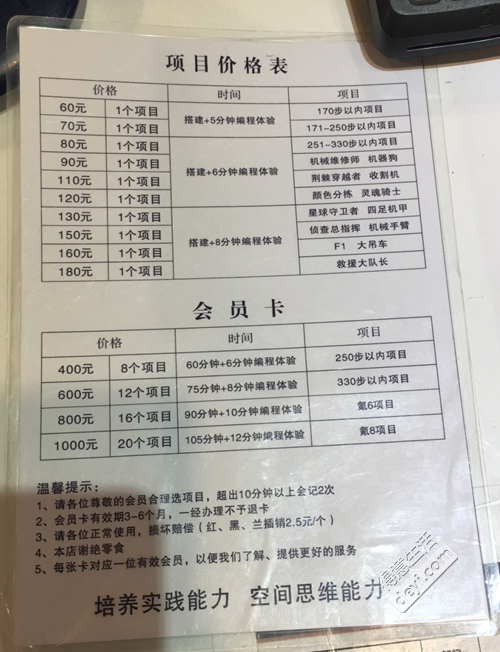 项目价格表
价格 时间 项目
60元 1个项目 搭建+5分钟编程体验 170步以内项目
70元 1个项目 171-250步以内项目
80元 1个项目 搭建+6分钟编程体验 251-330步以内项目
90元 1个项目 机械维修师 机器狗
110元 1个项目 荆棘穿越者 收割机
120元 1个项目 颜色分拣 灵魂骑士
130元 1个项目 搭建+8分钟编程体验 星球守卫者 四足机甲
150元 1个项目 侦查总指挥 机械手臂
160元 1个项目 F1 大吊车
180元 1个项目 救援大队长
会员卡
价格 时间 项目
400元 8个项目 60分钟+6分钟编程体验 250步以内项目
600元 12个项目 75分钟+8分钟编程体验 330步以内项目
800元 16个项目 90分钟+10分钟编程体验 氪6项目
1000元 20个项目 105分钟+12分钟编程体验 氪8项目
温馨提示：
1、请各位尊敬的会员合理选项目，超出10分钟以上会记2次
2、会员卡有效期3-6个月，一经办理不予退卡
3、请各位正常使用，损坏赔偿（红、黑、兰插销2.5元/个）
4、本店谢绝零食
5、每张卡对应一位有效会员，以便我们了解、提供更好的服务
培养实践能力 空间思维能力
得意生活
deyi.com